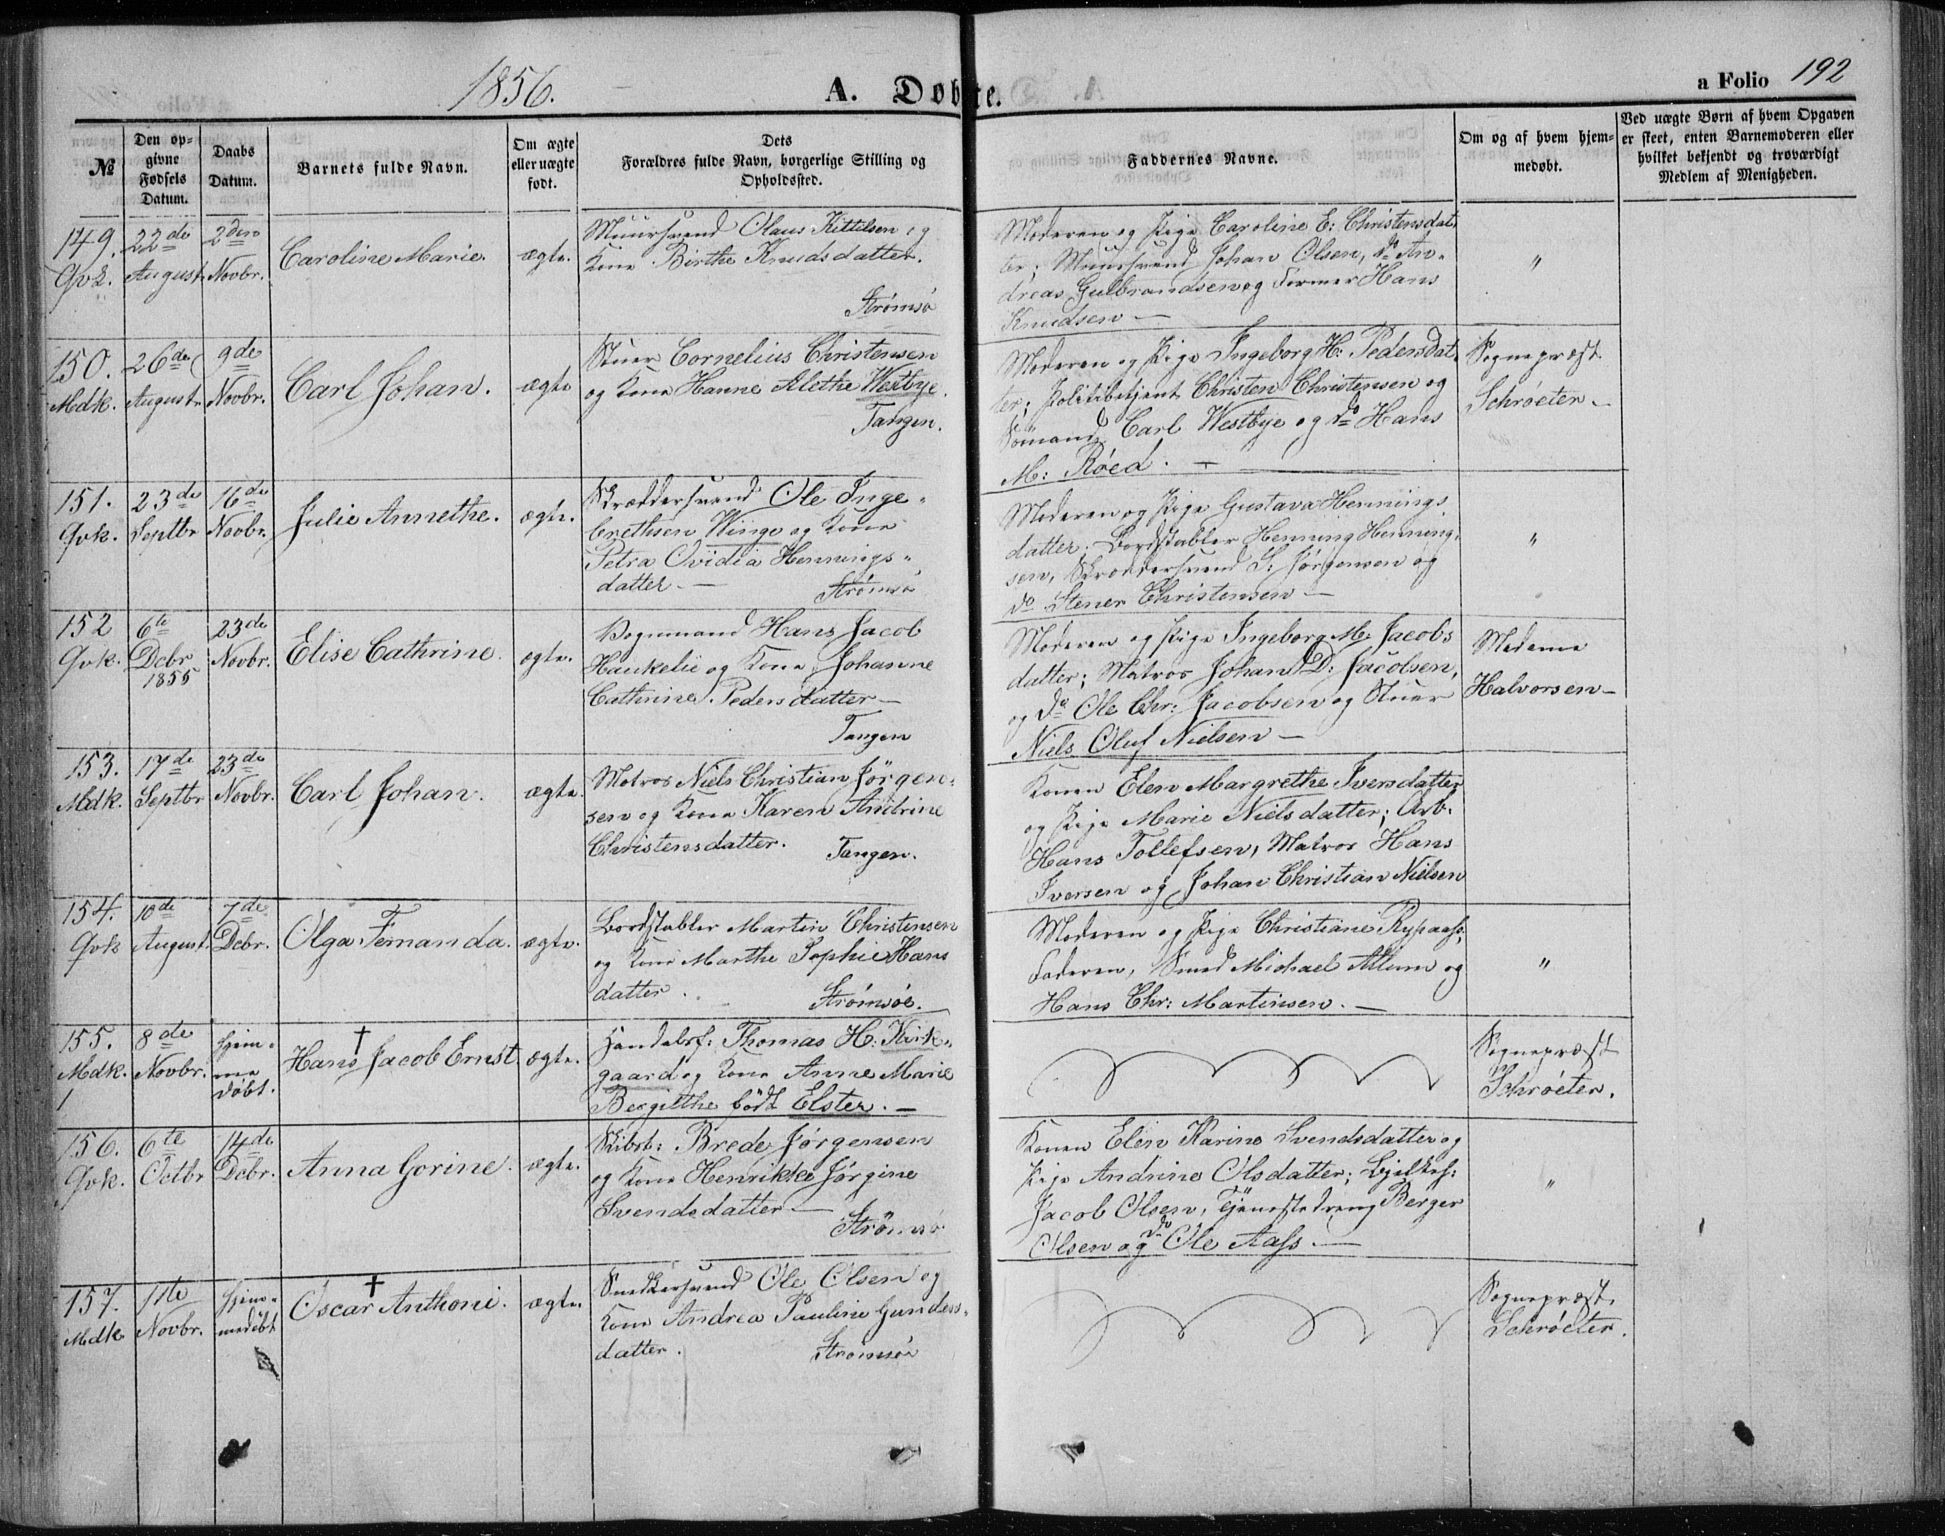 1856.
A. Døbte.
a Folio 192
№
Den opgivne Fødsels Datum.
Daabs Datum.
Barnets fulde Navn.
Om ægte eller uægte født.
Dets Forældres fulde Navn, borgerlige Stilling og Opholdssted.
Faddernes Navne.
Om og af hvem hjemmedøbt.
Ved uægte Børn af hvem Opgaven er skeet, enten Barnemoderen eller hvilket bekjendt og troværdigt Medlem af Menigheden.
149. Qvk.
22de August
2den Novbr.
Caroline Marie.
ægte.
Muursvend Olaus Kittilsen og
Kone Birthe Knudsdatter.
Strømsø
Moderen og Pige Caroline E: Christensdat
ter; Muursvend Johan Olsen, do An-
dreas Gulbrandsen og Former Hans
Knudsen —
"
150. Mdk.
26de August
9de Novbr.
Carl Johan.
ægte
Stuer Cornelius Christensen
og Kone Hanne Alethe Westbye.
Tangen.
Moderen og Pige Ingeborg H: Pedersdat
ter; Politibetjent Christen Christensen og
Sømand Carl Westbye og do Hans
M: Røed. —
Sognepræst
Schrøeter —
151. Qvk.
23de Septbr
16de Novbr.
Julie Annethe.
ægte.
Skræddersvend Ole Inge-
brethsen Winge og Kone
Petra Ovidia Hennings-
datter —
Strømsø
Moderen og Pige Gustava Hennings
datter; Bordstabler Henning Henning-
sen, Skræddersvend S: Jørgensen og
do Stener Christensen —
"
152 Qvk.
6te Dcbr 1855
23de Novbr.
Elise Cathrine.
ægte.
Bognmand Hans Jacob
Haukelie og Kone Johanne
Cathrine Pedersdatter —
Tangen
Moderen og Pige Ingeborg M: Jacobs
datter; Matros Johan D: Jacobsen,
og do Ole Chr: Jacobsen og Stuer
Niels Oluf Nielsen —
Madame
Halvorsen —
153. Mdk.
17de Septbr
23de Novbr.
Carl Johan.
ægte.
Matros Niels Christian Jørgen-
sen og Kone Karen Andrine
Christensdatter.
Tangen.
Konen Elen Margrethe Iversdatter
og Pige Marie Nielsdatter; Arb:
Hans Tollefsen, Matros Hans
Iversen og Johan Christian Nielsen
154. Qvk
10de August
7de Dcbr.
Olga Fernanda.
ægte.
Bordstabler Martin Christensen
og Kone Marthe Sophie Hans
datter.
Strømsøe.
Moderen og Pige Christiane Rypaas;
Faderen, Smed Michael Allum og
Hans Chr: Martinsen. —
"
155. Mdk. 1
8de Novbr.
hjem-
me
døbt.
†
Hans Jacob Ernst
ægte.
Handelsf: Thomas H: Kirk-
gaard og Kone Anne Marie
Bergitthe født Elster. —
Sognepræst
Schrøeter.
156. Qvk.
6te Octbr
14de Dcbr.
Anna Gorine.
ægte.
Skibsb: Brede Jørgensen
og Kone Henrikke Jørgine
Svendsdatter —
Strømsø
Konen Elen Karine Svendsdatter og
Pige Andrine Olsdatter; Bjelkeh:
Jacob Olsen, Tjenestedreng Berger
Olsen og do Ole Aass. —
"
157. Mdk
11te Novbr.
hjem-
medøbt
†
Oscar Anthoni.
ægte.
Snedkersvend Ole Olsen og
Kone Andrea Pauline Gunders-
datter.
Strømsøe
Sognepræst
Schrøeter.